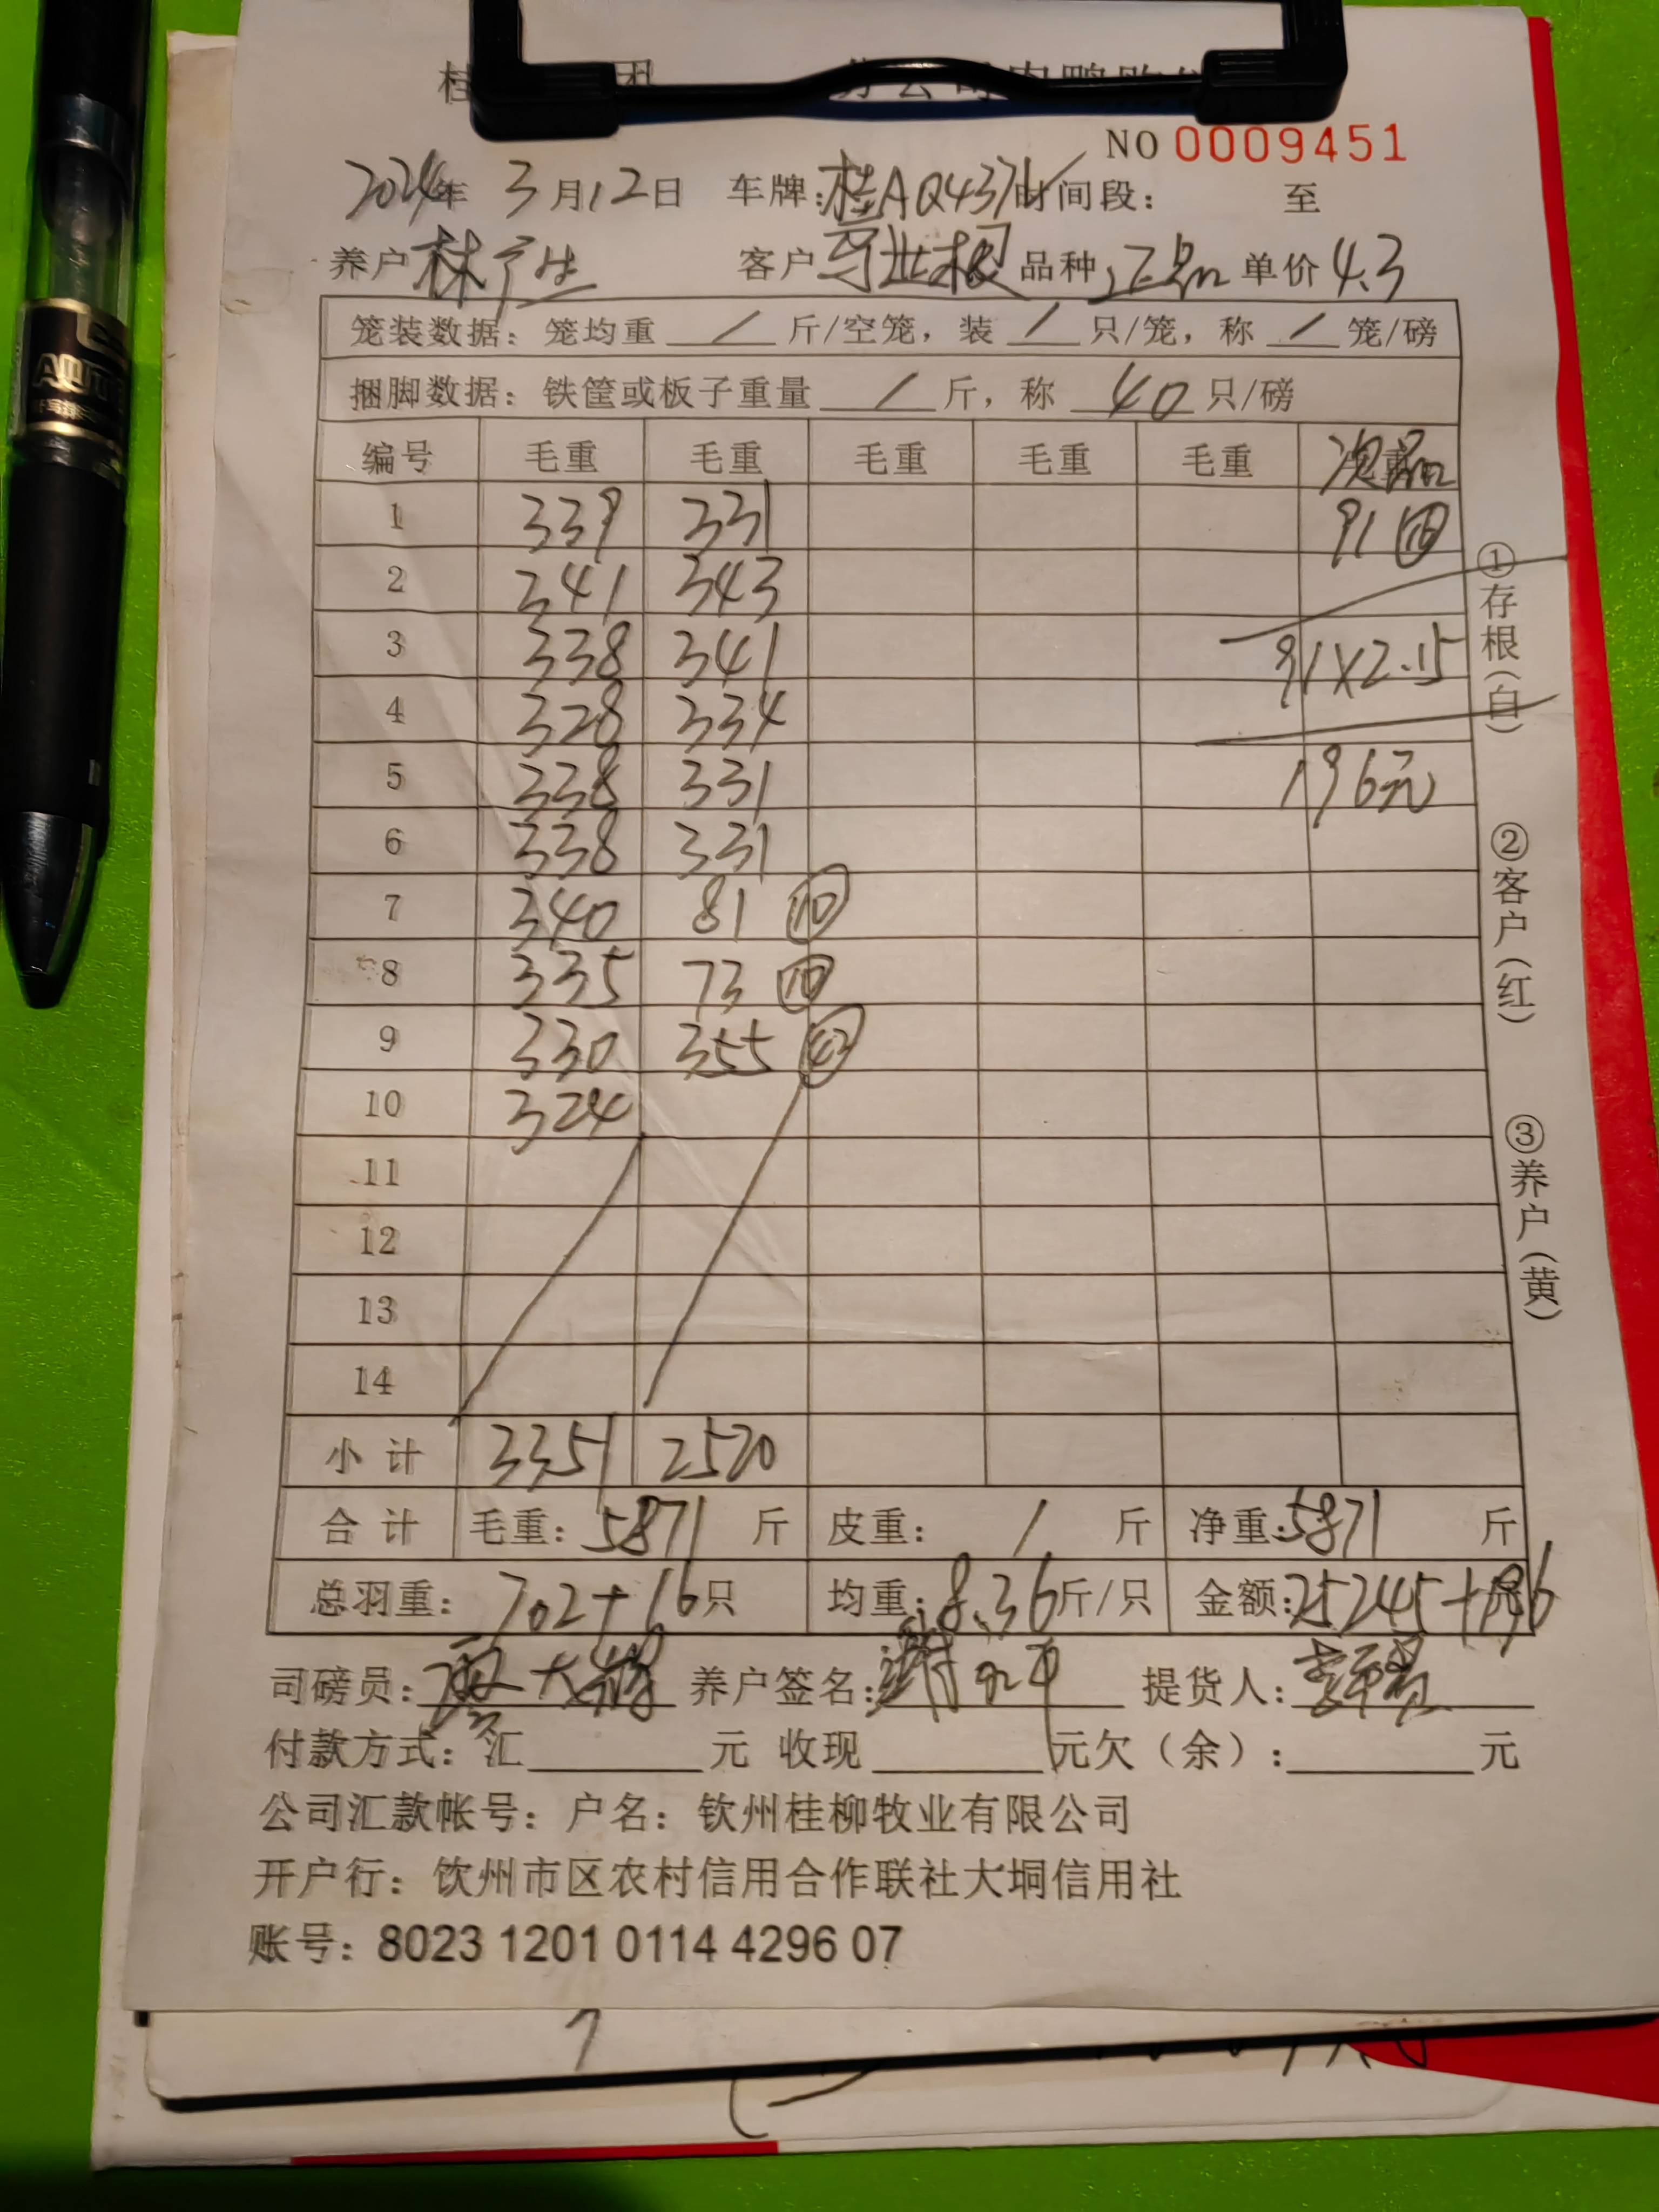 桂 团 分公司肉鸭
NO 0009451
2024年 3月12日 车牌:桂AQ437 时间段: 至
养户 林产生 客户 业根 品种 正品 单价 4.3
笼装数据: 笼均重 / 斤/空笼, 装 / 只/笼, 称 / 笼/磅
捆脚数据: 铁筐或板子重量 / 斤, 称 40 只/磅
编号 毛重 毛重 毛重 毛重 毛重 次品
1 339 331 91
2 341 343
3 338 341 91×2.15
4 328 334
5 338 331 196元
6 338 331
7 340 81 ⑩
8 335 73 ⑩
9 330 355 ㊷
10 324
11
12
13
14
小计 3351 2520
合计 毛重: 5871 斤 皮重: / 斤 净重: 5871 斤
总羽重: 702+16只 均重: 8.36斤/只 金额: 25245+196
司磅员: 廖大 养户签名: 谢 平 提货人: 李
付款方式: 汇 元 收现 元欠(余): 元
公司汇款帐号: 户名: 钦州桂柳牧业有限公司
开户行: 饮州市区农村信用合作联社大垌信用社
账号: 8023 1201 0114 4296 07
①存根(白)
②客户(红)
③养户(黄)